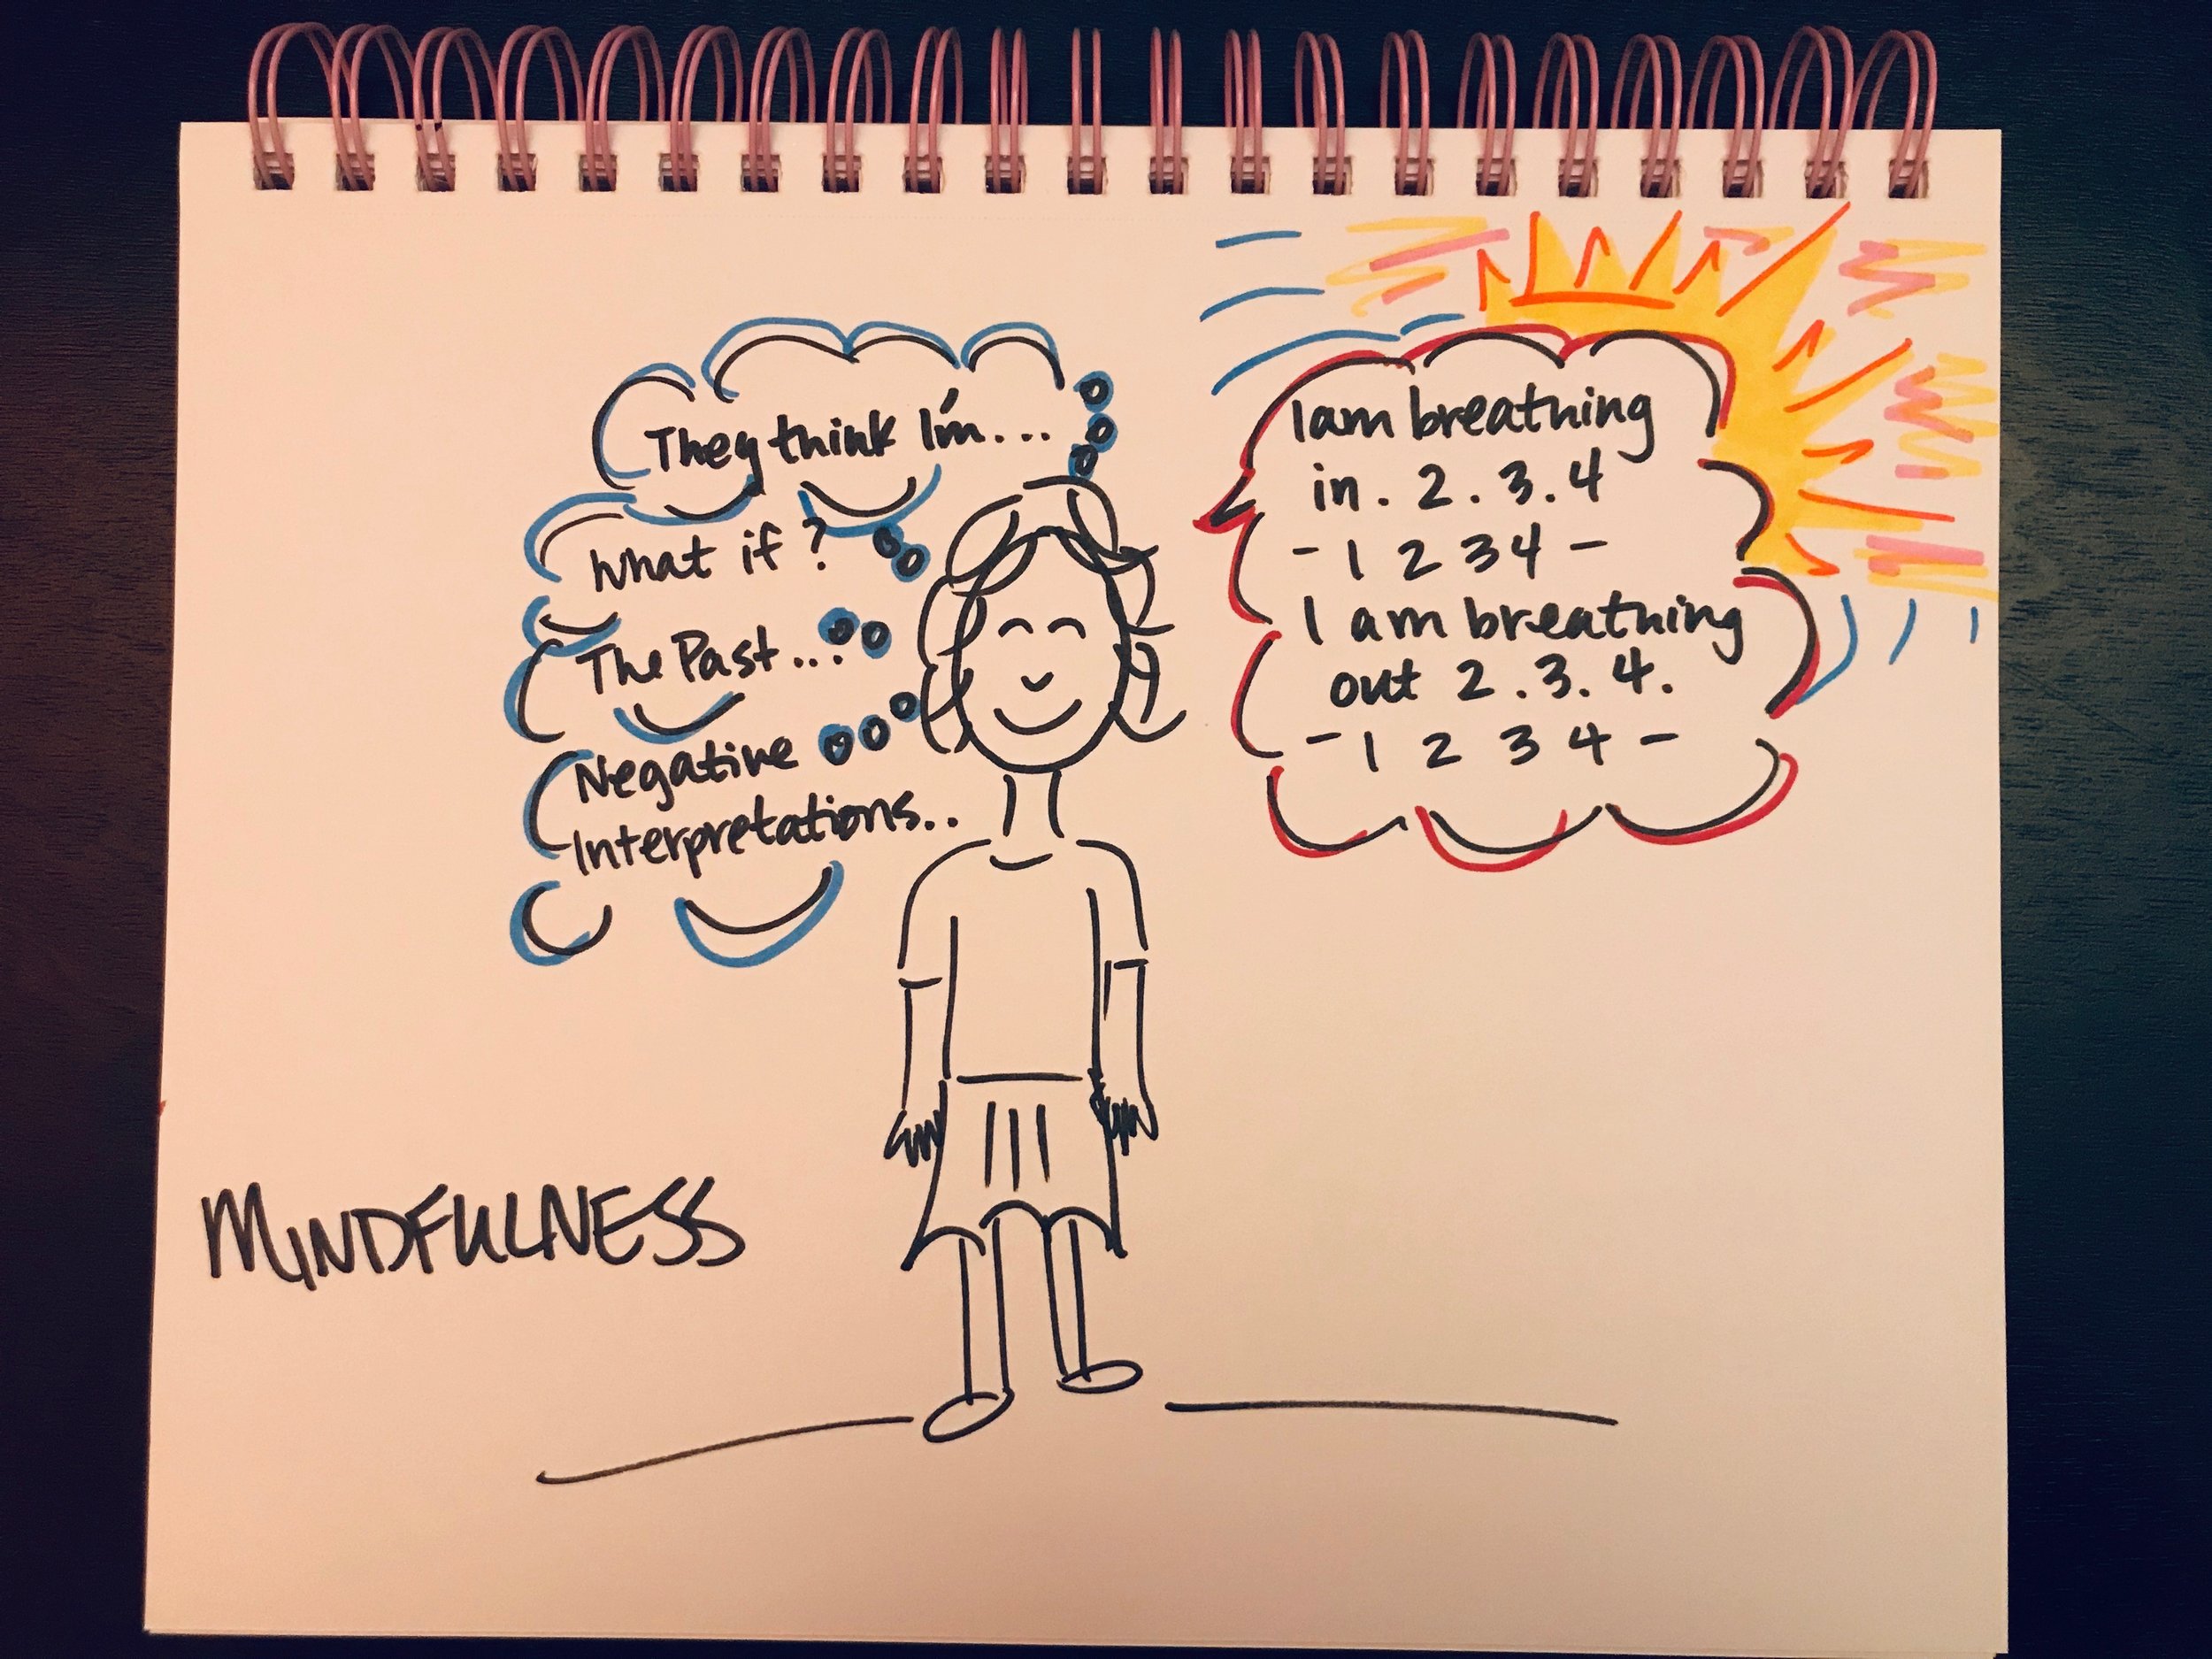 They think I'm...
What if?
The Past...
Negative
Interpretations..
I am breathing
in. 2. 3. 4
- 1 2 3 4 -
I am breathing
out 2. 3. 4.
- 1 2 3 4 -
MINDFULNESS